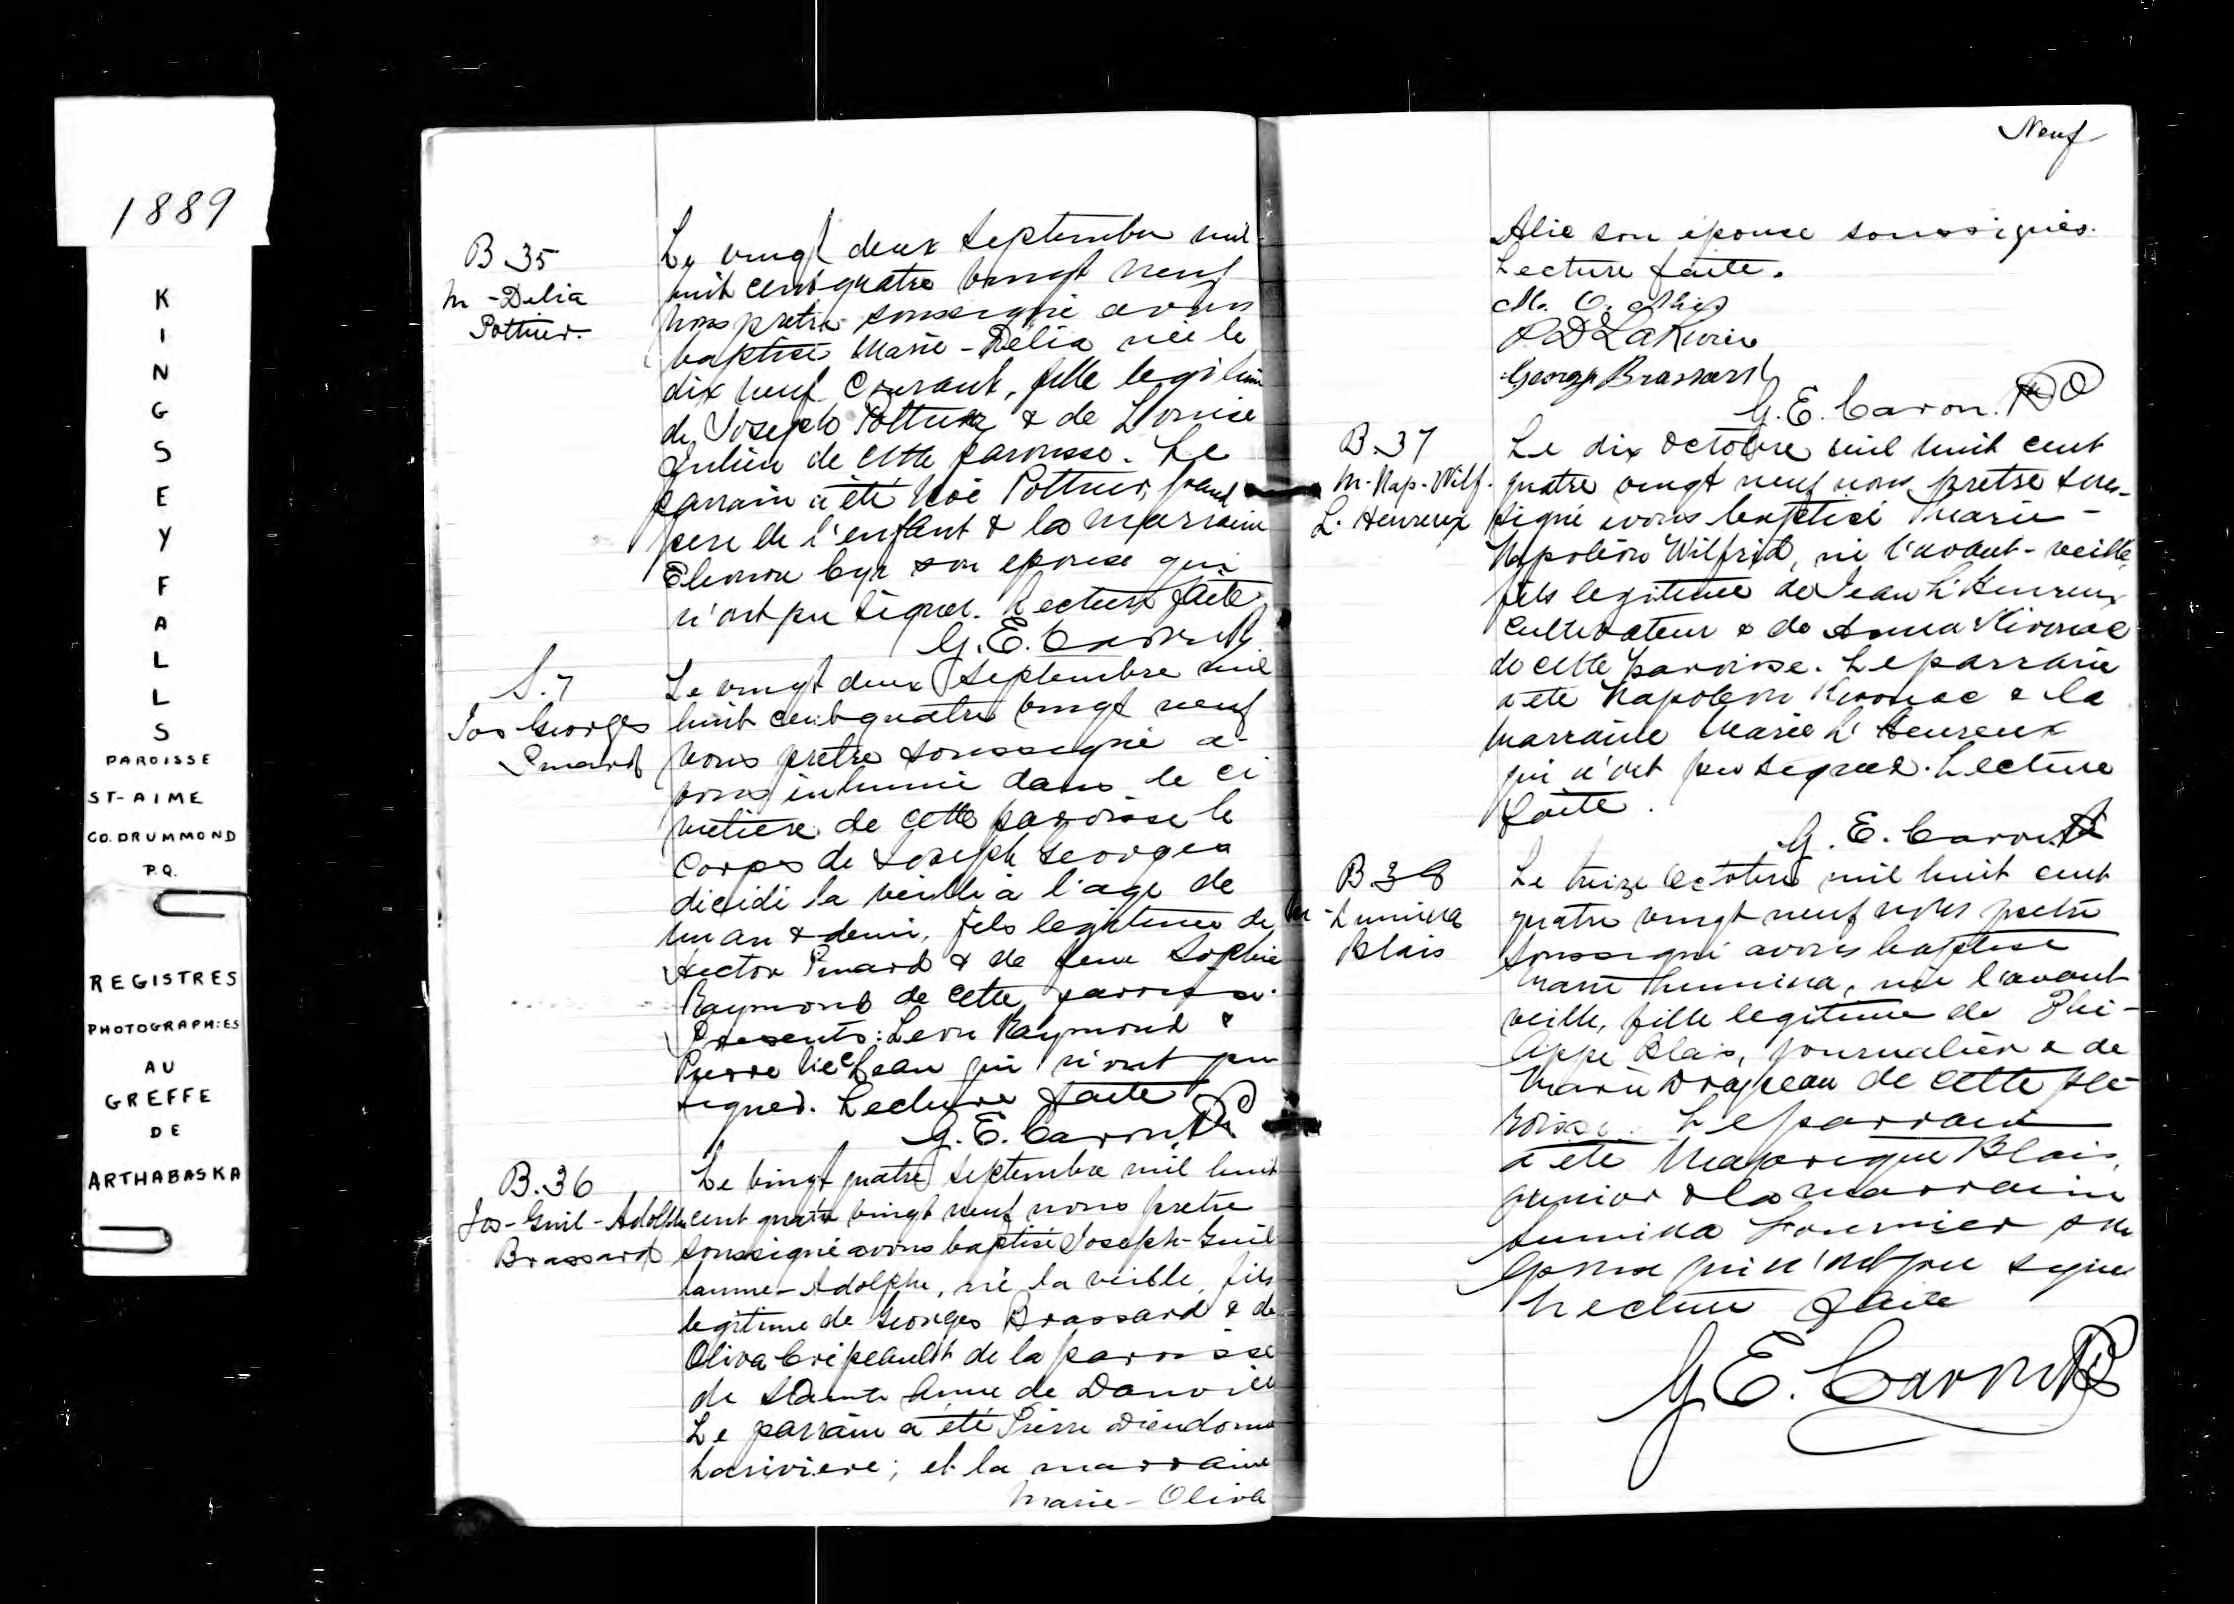 1889
KINGSEY FALLS
PAROISSE
ST-AIME
CO. DRUMMOND
P.Q.
REGISTRES
PHOTOGRAPHIES
AU
GREFFE
DE
ARTHABASKA
B 35
M - Delia
Pottier.
Le vingt deux Septembre mil
huit cent quatre vingt neuf
nous pretre soussigné avons
baptisé Marie-Délia née le
dix neuf courant, fille legitime
de Joseph Pottier & de Louise
Julien de cette paroisse. Le
parrain a été Noé Pottier, grand
pere de l'enfant & la marraine
Eleonore Cyr son epouse qui
n'ont pu signer. Lecture faite.
G. E. Caron Ptr
S. 7
Jos Georges
Pinard
Le vingt deux Septembre mil
huit cent quatre vingt neuf
nous pretre soussigné a-
vons inhumé dans le ci
metiere de cette paroisse le
corps de Joseph Georges
dicidi la veille à l'age de
un an & demi, fils legitime de
Hector Pinard & de feue Sophie
Raymond de cette paroisse.
Presents: Leon Raymond &
Pierre qui n'ont pu
signer. Lecture faite
G. E. Caron Ptr
B. 36
Jos-Guil-Adolphe
Brassard
Le vingt quatre Septembre mil huit
cent quatre vingt neuf nous pretre
soussigné avons baptisé Joseph-Guil
laume-Adolphe, né la veille, fils
legitime de Georges Brassard & de
Oliva Cripeault de la paroisse
de Sainte Anne de Danville
Le parrain a été Pierre Dieudonné
Lariviere; et la marraine
Marie-Oliva
Neuf
Alie son épouse soussignés.
Lecture faite.
M. O. Alie
P D LaRivière
George Brassard
G. E. Caron. Ptr
B. 37
M-Nap-Wilf.
L'Heureux
Le dix Octobre mil huit cent
quatre vingt neuf nous pretre sous-
signé avons baptisé Marie-
Napoléon Wilfrid, né l'avant-veille,
fils legitime de Jean L'Heureux
cultivateur & de Anna
de cette paroisse. Le parrain
a été Napoleon & la
marraine Marie L'Heureux
qui n'ont pu signer. Lecture
faite.
G. E. Caron Ptr
B 38
M - Lumina
Blais
Le treize Octobre mil huit cent
quatre vingt neuf nous pretre
soussigné avons baptisé
Marie Lumina, née l'avant
veille, fille legitime de Phi-
lippe Blais, journalier & de
Marie Drapeau de cette pa-
roisse. Le parrain
a été Majorique Blais,
junior & la marraine
Lumina Fournier son
epouse qui n'ont pu signer
Lecture faite
G E. Caron Ptr